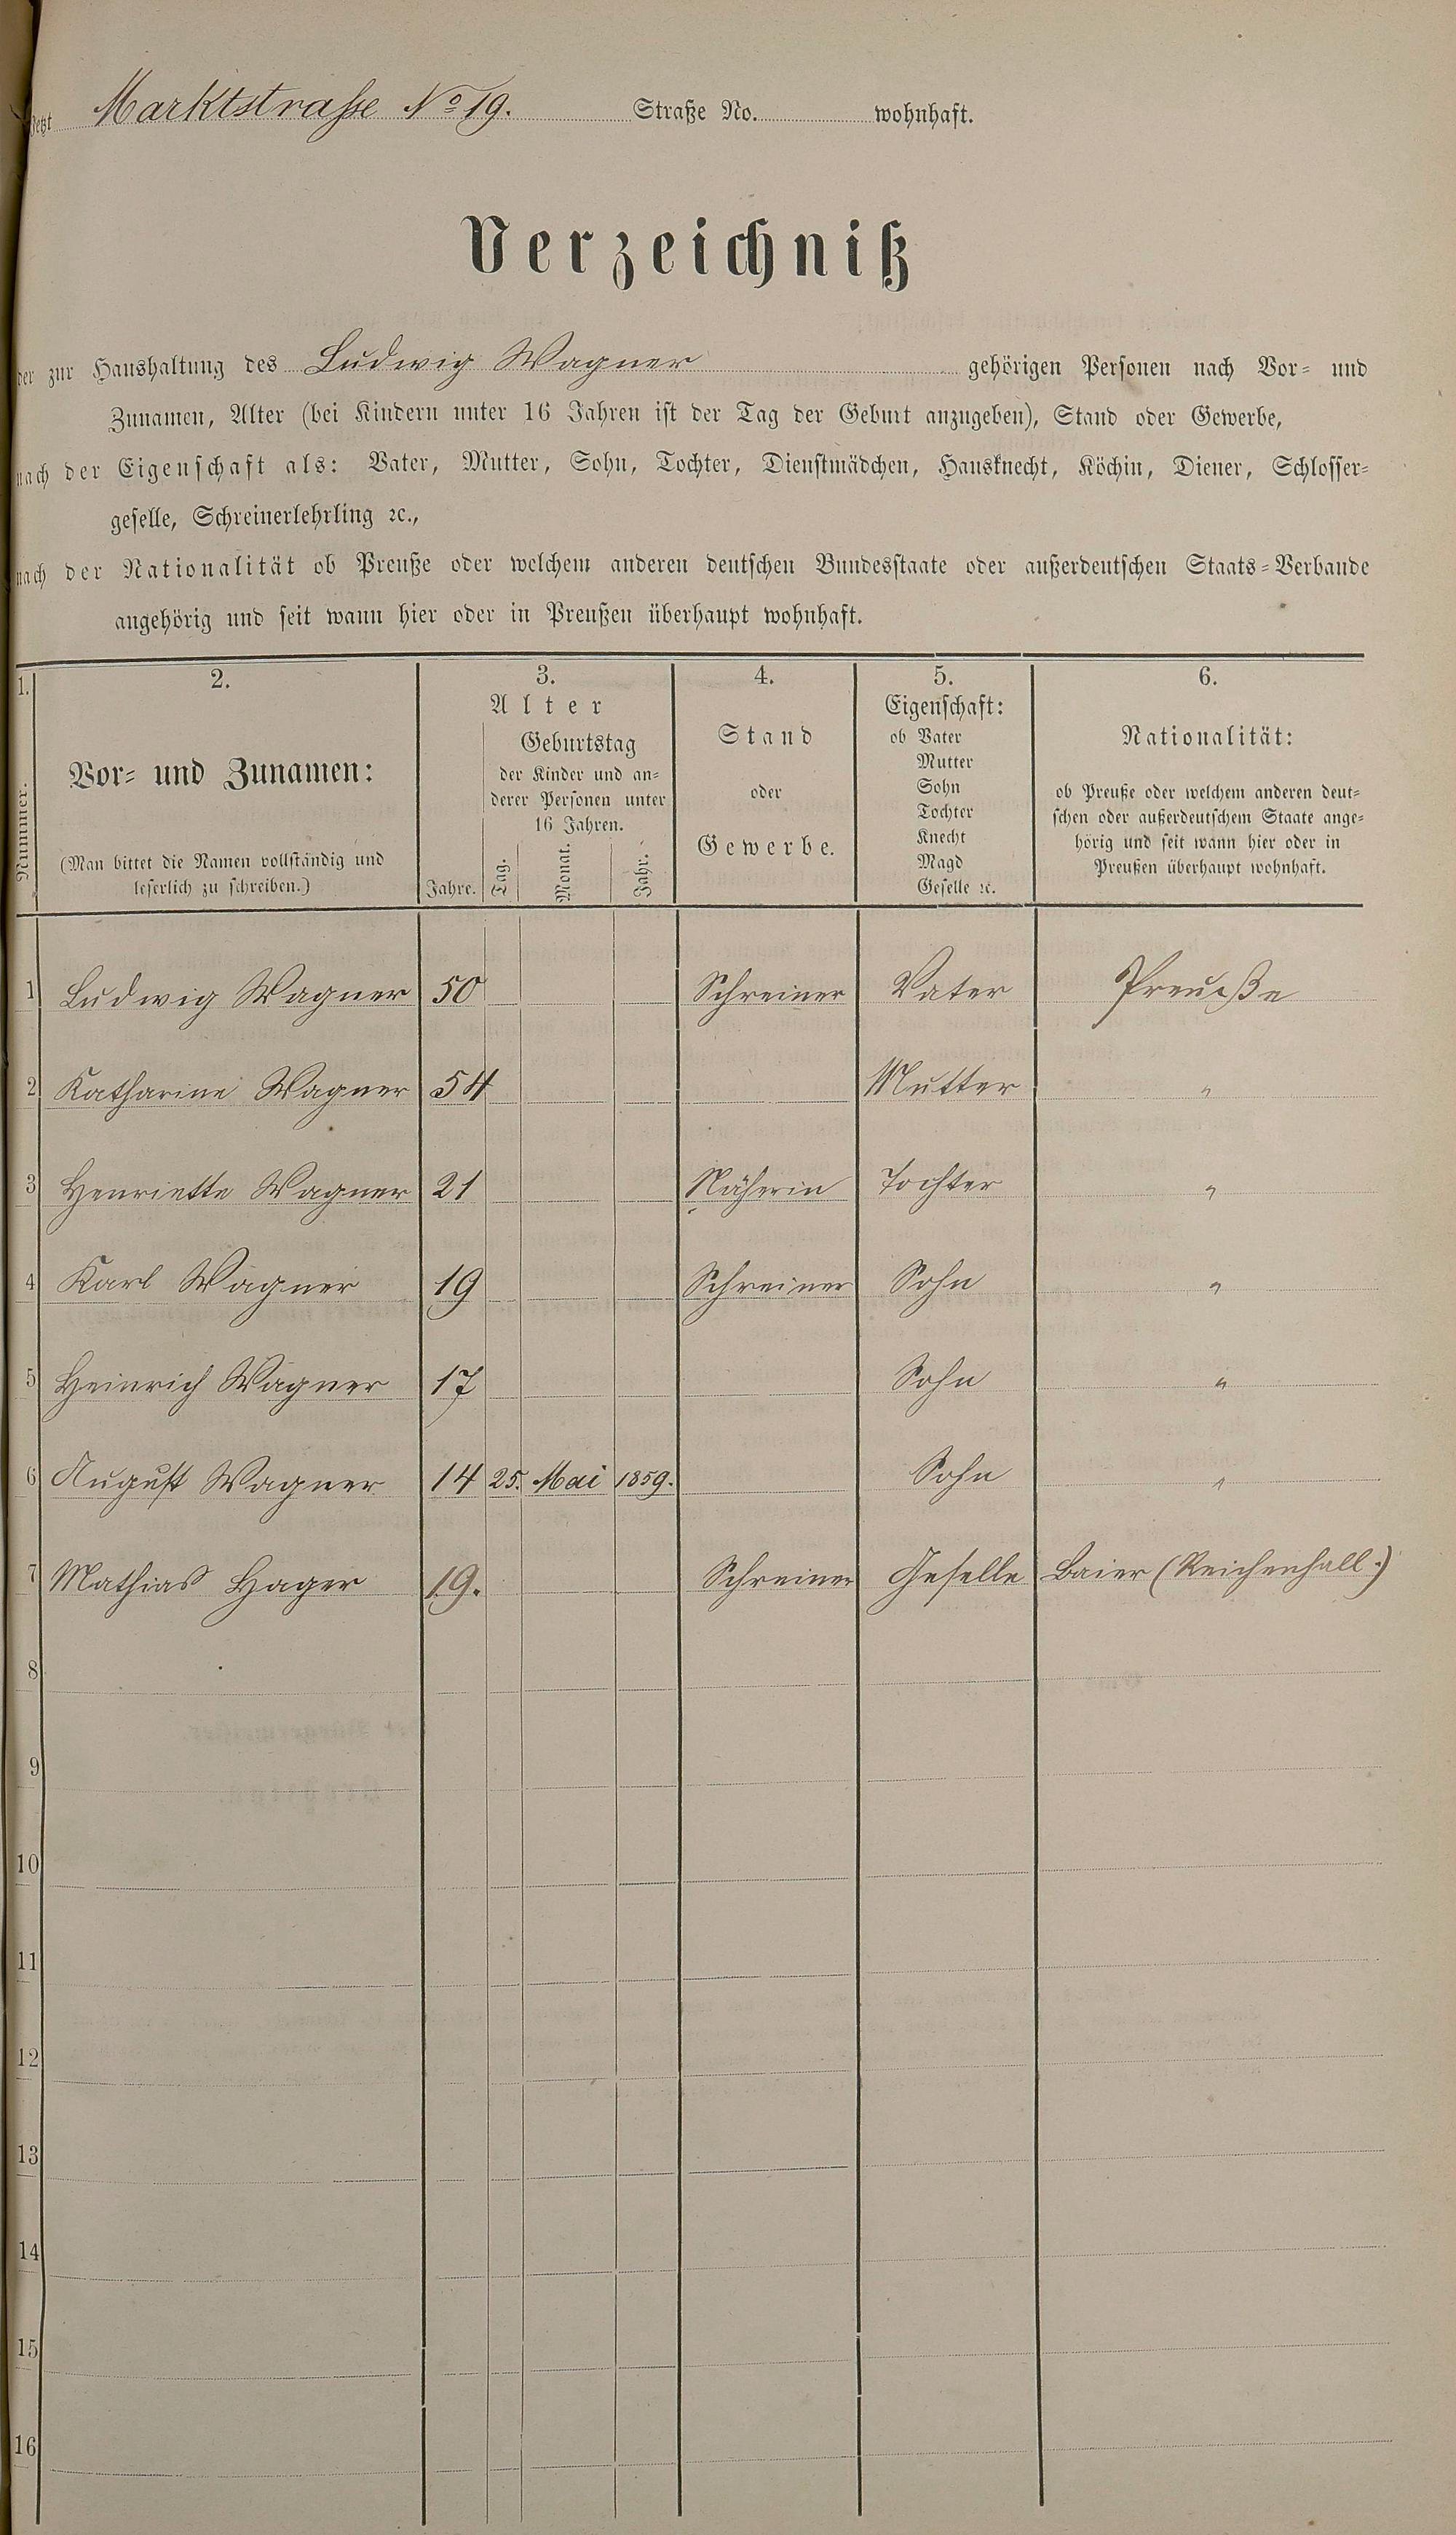 Jetzt Marktstraße No 19. Straße No. wohnhaft.
Verzeichniß
der zur Haushaltung des Ludwig Wagner gehörigen Personen nach Vor- und
Zunamen, Alter (bei Kindern unter 16 Jahren ist der Tag der Geburt anzugeben), Stand oder Gewerbe,
nach der Eigenschaft als: Vater, Mutter, Sohn, Tochter, Dienstmädchen, Hausknecht, Köchin, Diener, Schlosser-
geselle, Schreinerlehrling ꝛc.,
nach der Nationalität ob Preuße oder welchem anderen deutschen Bundesstaate oder außerdeutschen Staats-Verbande
angehörig und seit wann hier oder in Preußen überhaupt wohnhaft.
1.
Nummer.
2.
Vor- und Zunamen:
(Man bittet die Namen vollständig und
leserlich zu schreiben.)
3.
Alter
Jahre.
Geburtstag
der Kinder und an-
derer Personen unter
16 Jahren.
Tag. Monat. Jahr.
4.
Stand
oder
Gewerbe.
5.
Eigenschaft:
ob Vater
Mutter
Sohn
Tochter
Knecht
Magd
Geselle ꝛc.
6.
Nationalität:
ob Preuße oder welchem anderen deut-
schen oder außerdeutschem Staate ange-
hörig und seit wann hier oder in
Preußen überhaupt wohnhaft.
1 Ludwig Wagner 50 Schreiner Vater Preuße
2 Katharine Wagner 54 Mutter "
3 Henriette Wagner 21 Näherin Tochter "
4 Karl Wagner 19 Schreiner Sohn "
5 Heinrich Wagner 17 Sohn "
6 August Wagner 14 25. Mai 1859. Sohn "
7 Mathias Hager 19. Schreiner Geselle Baier (Reichenhall.)
8
9
10
11
12
13
14
15
16